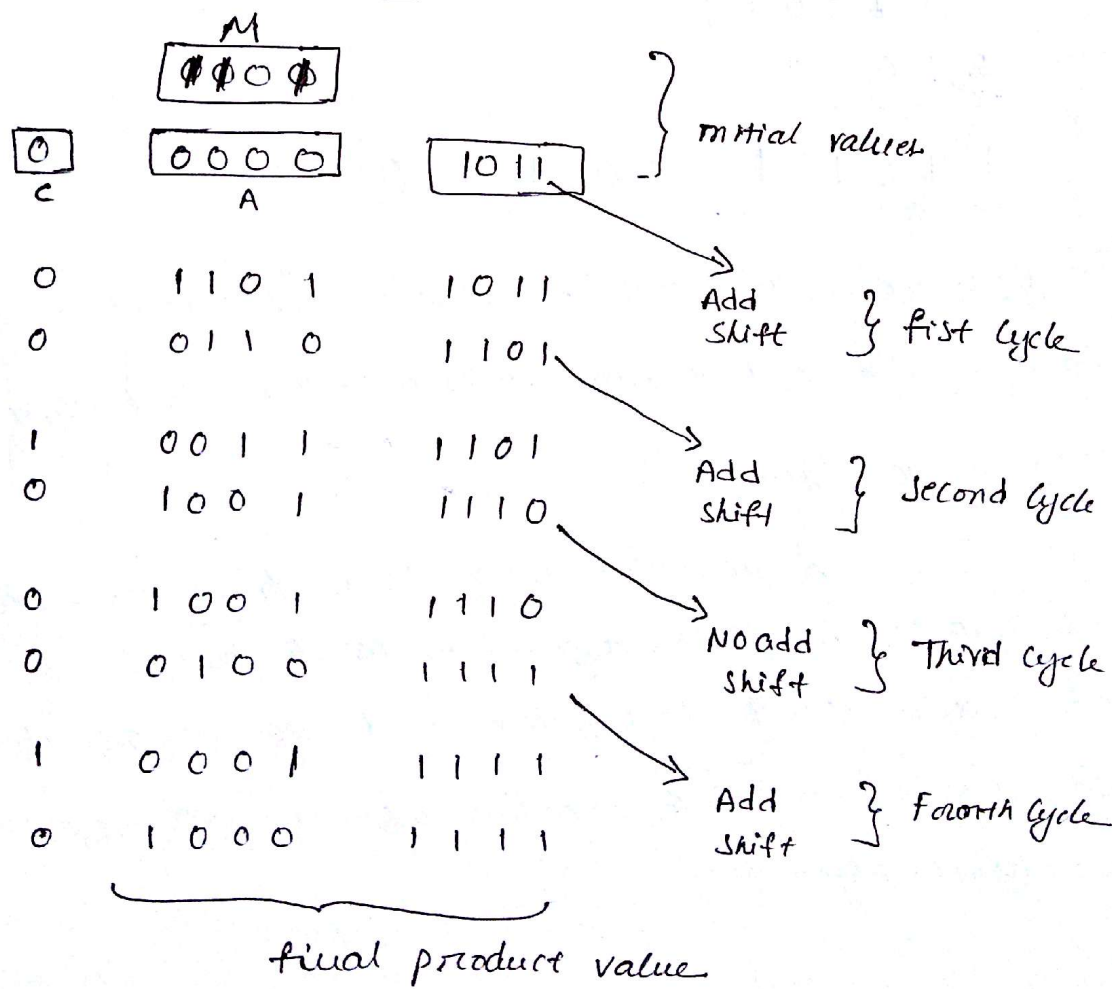 M
1 1 0 1
0 0 0 0 0 1 0 1 1 mitial values
C A
0 1 1 0 1 1 0 1 1 Add
0 0 1 1 0 1 1 0 1 Shift } fist Cycle
1 0 0 1 1 1 1 0 1 Add
0 1 0 0 1 1 1 1 0 Shift } Second Cycle
0 1 0 0 1 1 1 1 0 No add
0 0 1 0 0 1 1 1 1 Shift } Third Cycle
1 0 0 0 1 1 1 1 1 Add
0 1 0 0 0 1 1 1 1 Shift } Fororth Cycle
final product value